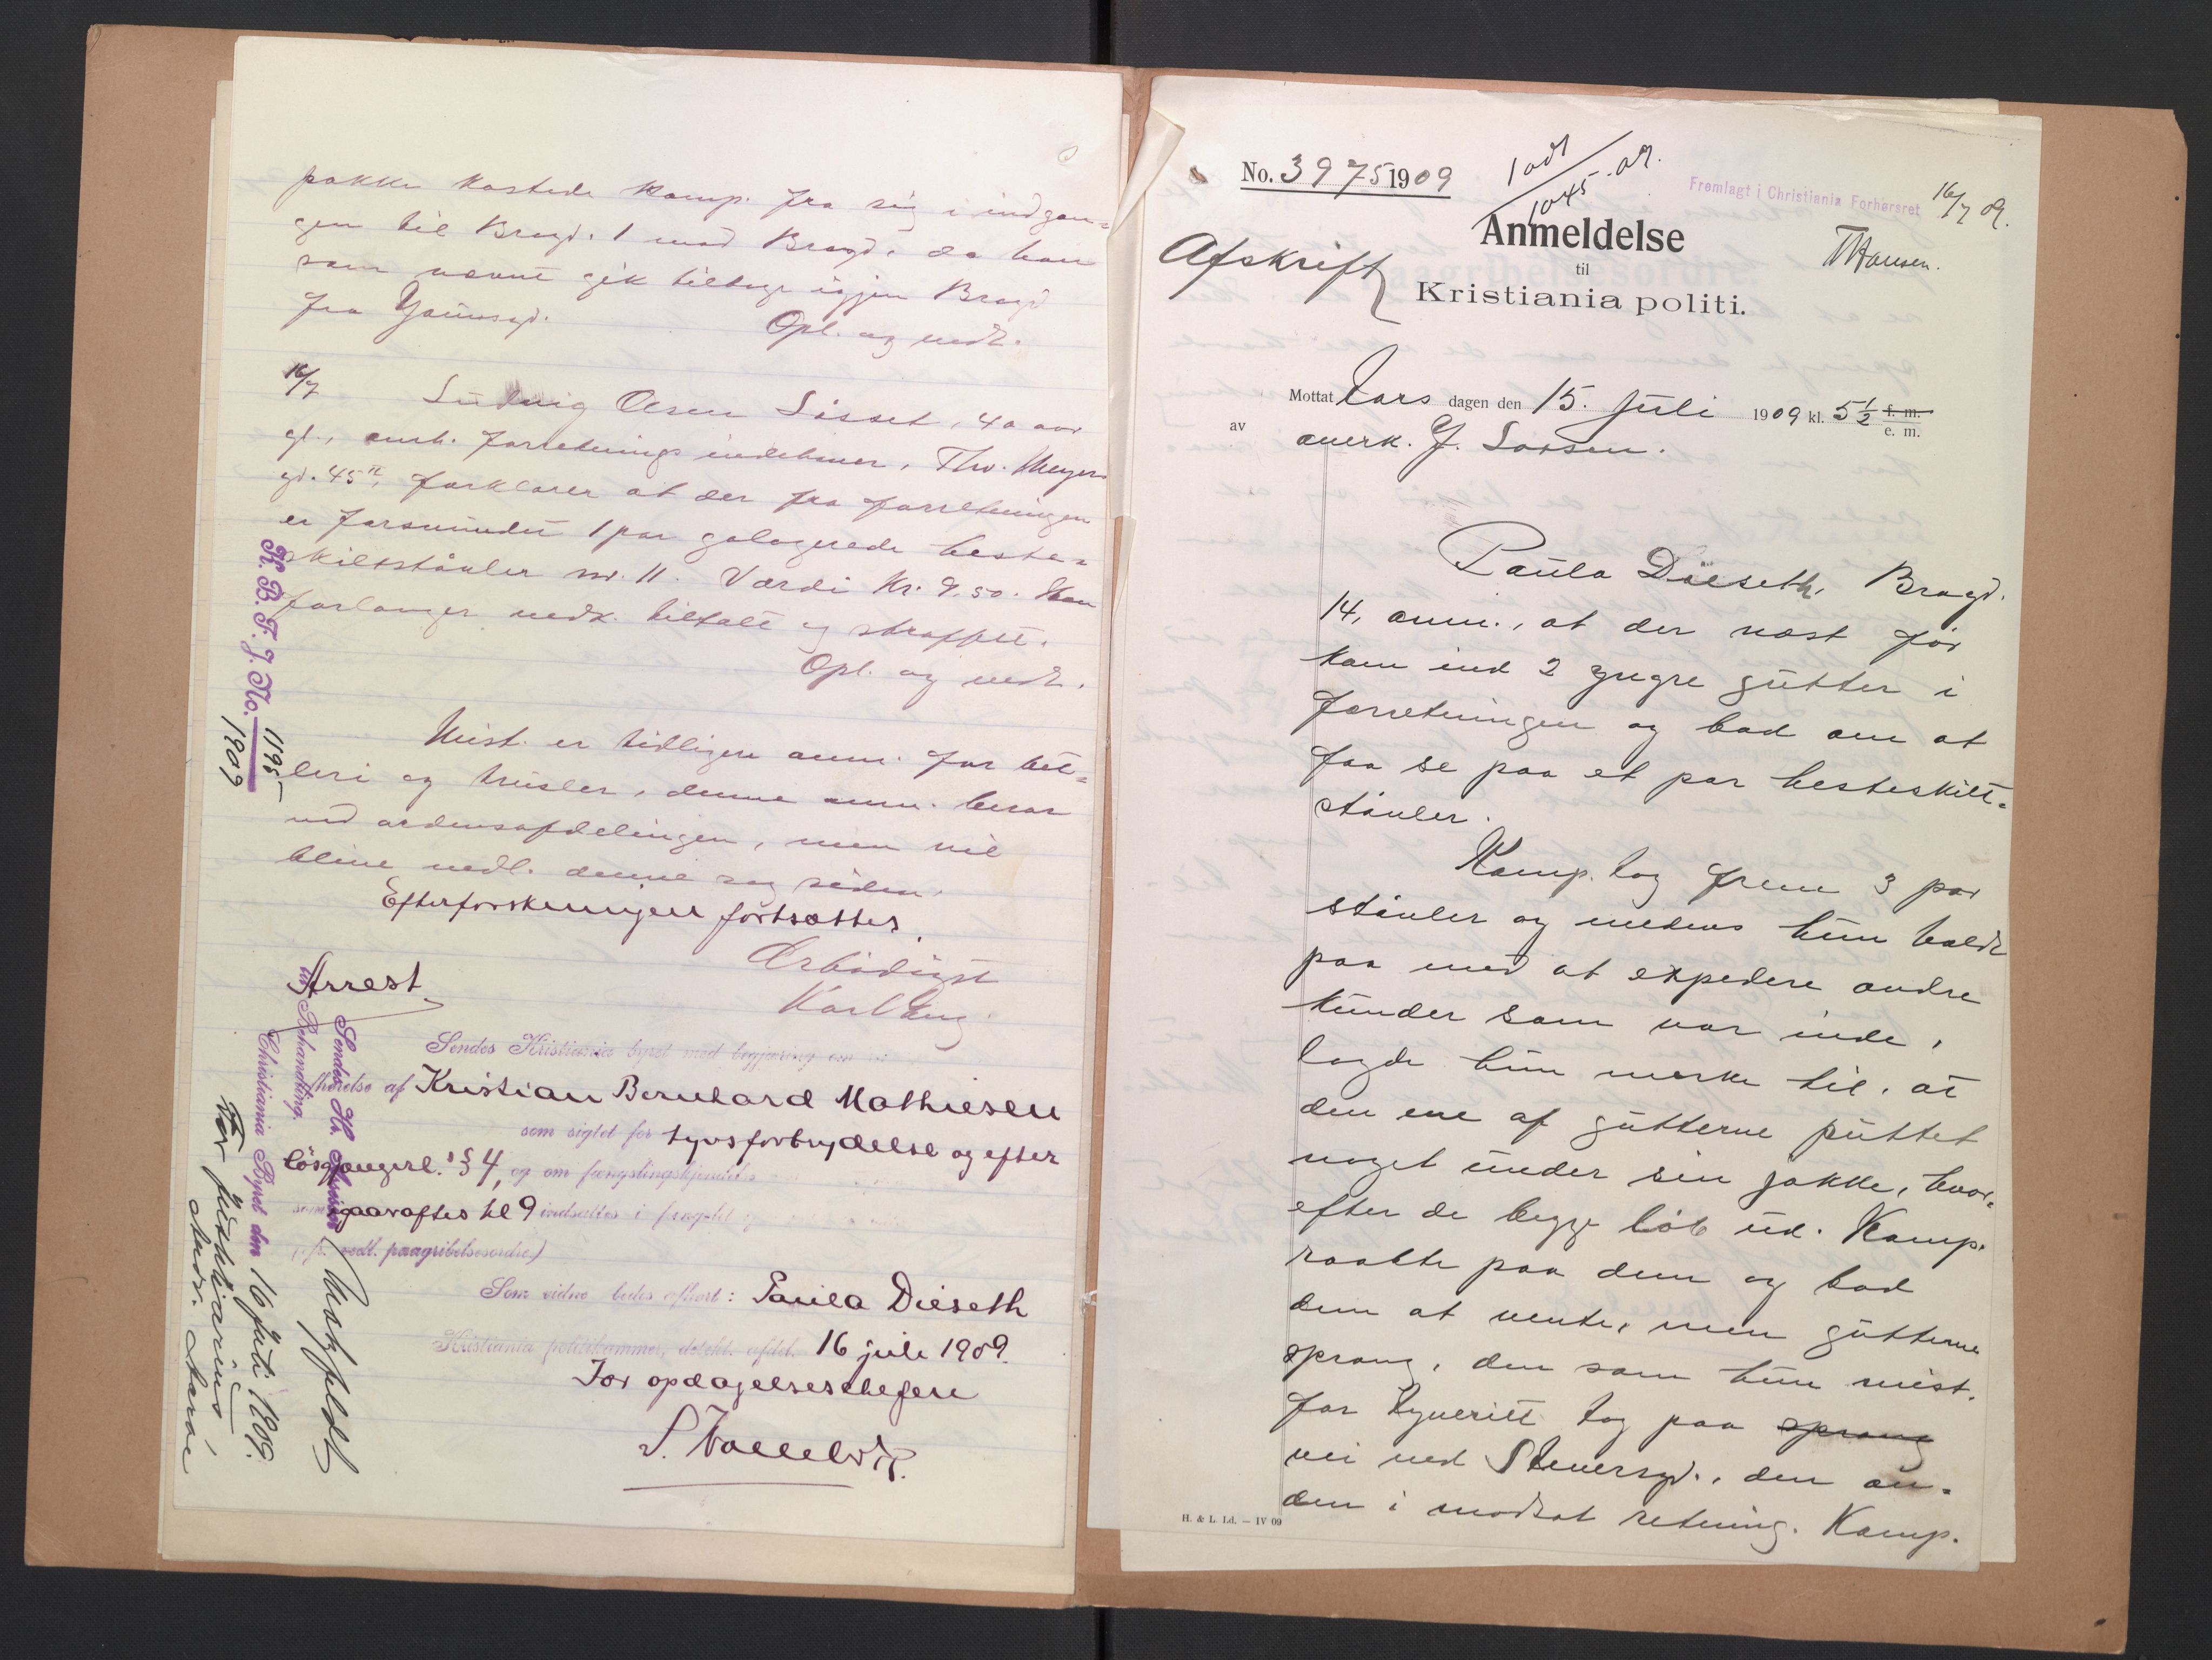 pakke kastede komp. fra sig i indgan=
gen til Brogd. 1 mod Brogd. da han
som nævnt gik tilbage igjen Brogd
fra Youngsgd.
Opl. og vedt.
16/7
Ludvig Olsen Sisset, 40 aar
gl., anh. forretningsindehaver, Thv. Meyers
gd. 45 II, forklarer at der fra forretningen
er forsvundet 1 par galogerede heste=
skiltstøvler nr. 11. Værdi Kr. 9.50. Han
forlanger vedk. tiltalt og straffet.
Opl. og vedt.
Mist. er tidligere anm. for bet=
leri og trusler, denne anm. beror
ved ordensafdelingen, men vil
blive vedl. denne sag siden.
Efterforskningen fortsættes.
Ærbødigst
Karl Aug
Arrest
Sendes Kristiania byret med begjæring om
afhørelse af Kristian Bernhard Mathiesen
som sigtet for tyvsforbrydelse og efter
løsgjængerl.'s § 4, og om fængslingskjendelse
som iaaraftes kl 9 indsattes i fængslet
(jfr. vedl. paagribelsesordre)
Som vidne bedes afhørt: Paula Dieseth
Kristiania politikammer, detekt. afdel. 16 juli 1909.
For opdagelseschefen
K. B. F. J. No. 1195
1909
Sendes Hr. Assessor Motzfeldt
til Behandling.
Christiania Byret den 16 juli 1909.
For justitiarius
No. 3975 1909
1 odt
1045. 09.
Fremlagt i Christiania Forhørsret 16/7 09.
THansen.
Afskrift
Anmeldelse
til
Kristiania politi.
Mottat Tors dagen den 15. juli 1909 kl. 5 1/2 f. m.
e. m.
av overk. J. Larsen.
Paula Dieseth, Brogd.
14, anm., at der næst før
kom ind 2 yngre gutter i
forretningen og bad om at
faa se paa et par hesteskilt=
støvler.
Komp. tog frem 3 par
støvler og medens hun holdt
paa med at expedere andre
kunder som var inde,
lagde hun merke til, at
den ene af gutterne puttet
noget under sin jakke, hvor=
efter de begge løb ud. Komp.
raabte paa dem og bad
dem at vente, men gutterne
sprang, den som hun mist.
for tyveriet tog paa sprang
vei ned Stenersgd., den an=
den i modsat retning. Komp.
H. & L. Ld. — IV 09